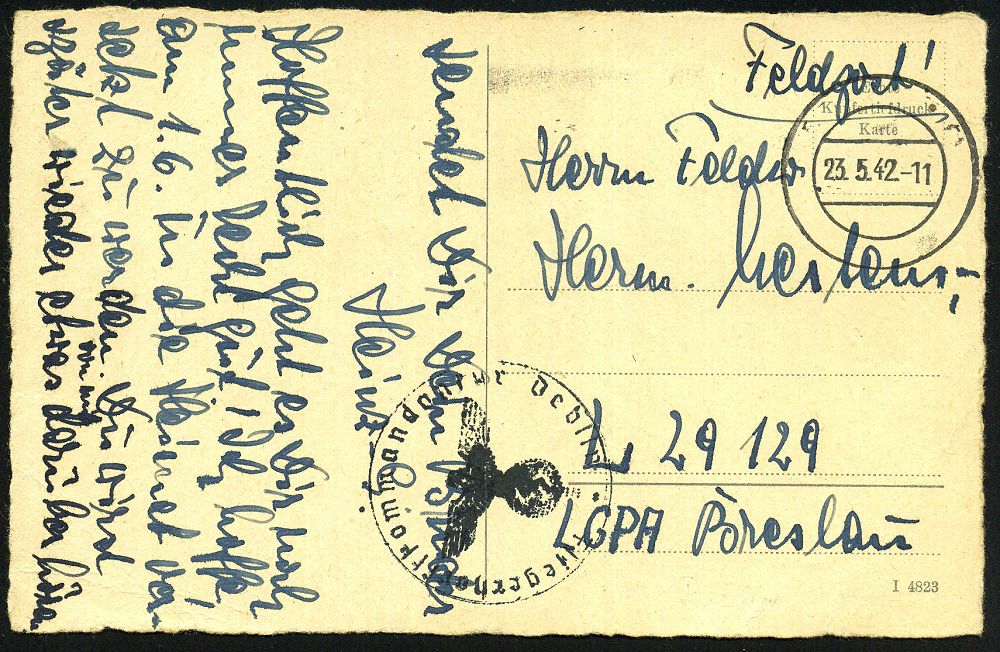 Feldpost!
Kupfertiefdruck-
Karte
23.5.42.-11
Herrn Feldw
Herm. Mertens,
L 29 129
LGPA Breslau
I 4823
Fliegerhorstkommandantur Deblin
sendet Dir Dein Bruder
Heinz
Hoffentlich geht es Dir noch
immer recht gut, Ich hoffe,
am 1.6. in die Heimat ver-
setzt zu werden. Du wirst
von mir
später wieder etwas darüber hören